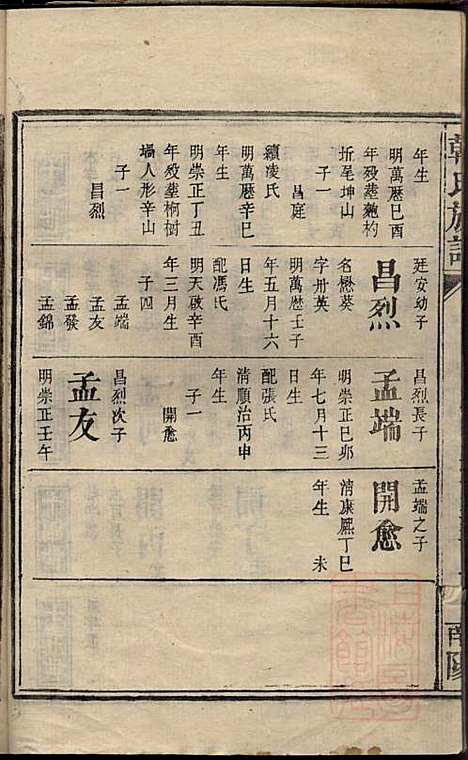 年生
明萬曆已酉
年歿塟匏杓
折尾坤山
子一
昌庭
續淩氏
明萬曆辛巳
年生
明崇正丁丑
年歿塟柯樹
堝人形辛山
子一
昌烈
廷安幼子
昌烈
名懋葵
字卅英
明萬曆壬子
年五月十六
日生
配馮氏
明天啟辛酉
年三月生
子四
孟端
孟友
孟發
孟錦
昌烈長子
孟端
明崇正巳夘
年七月十三
日生
配張氏
清順治丙申
年生
子一
開愈
昌烈次子
孟友
明崇正壬午
孟端之子
開愈
清康熈丁巳
年生 未
韓氏族譜
南陽